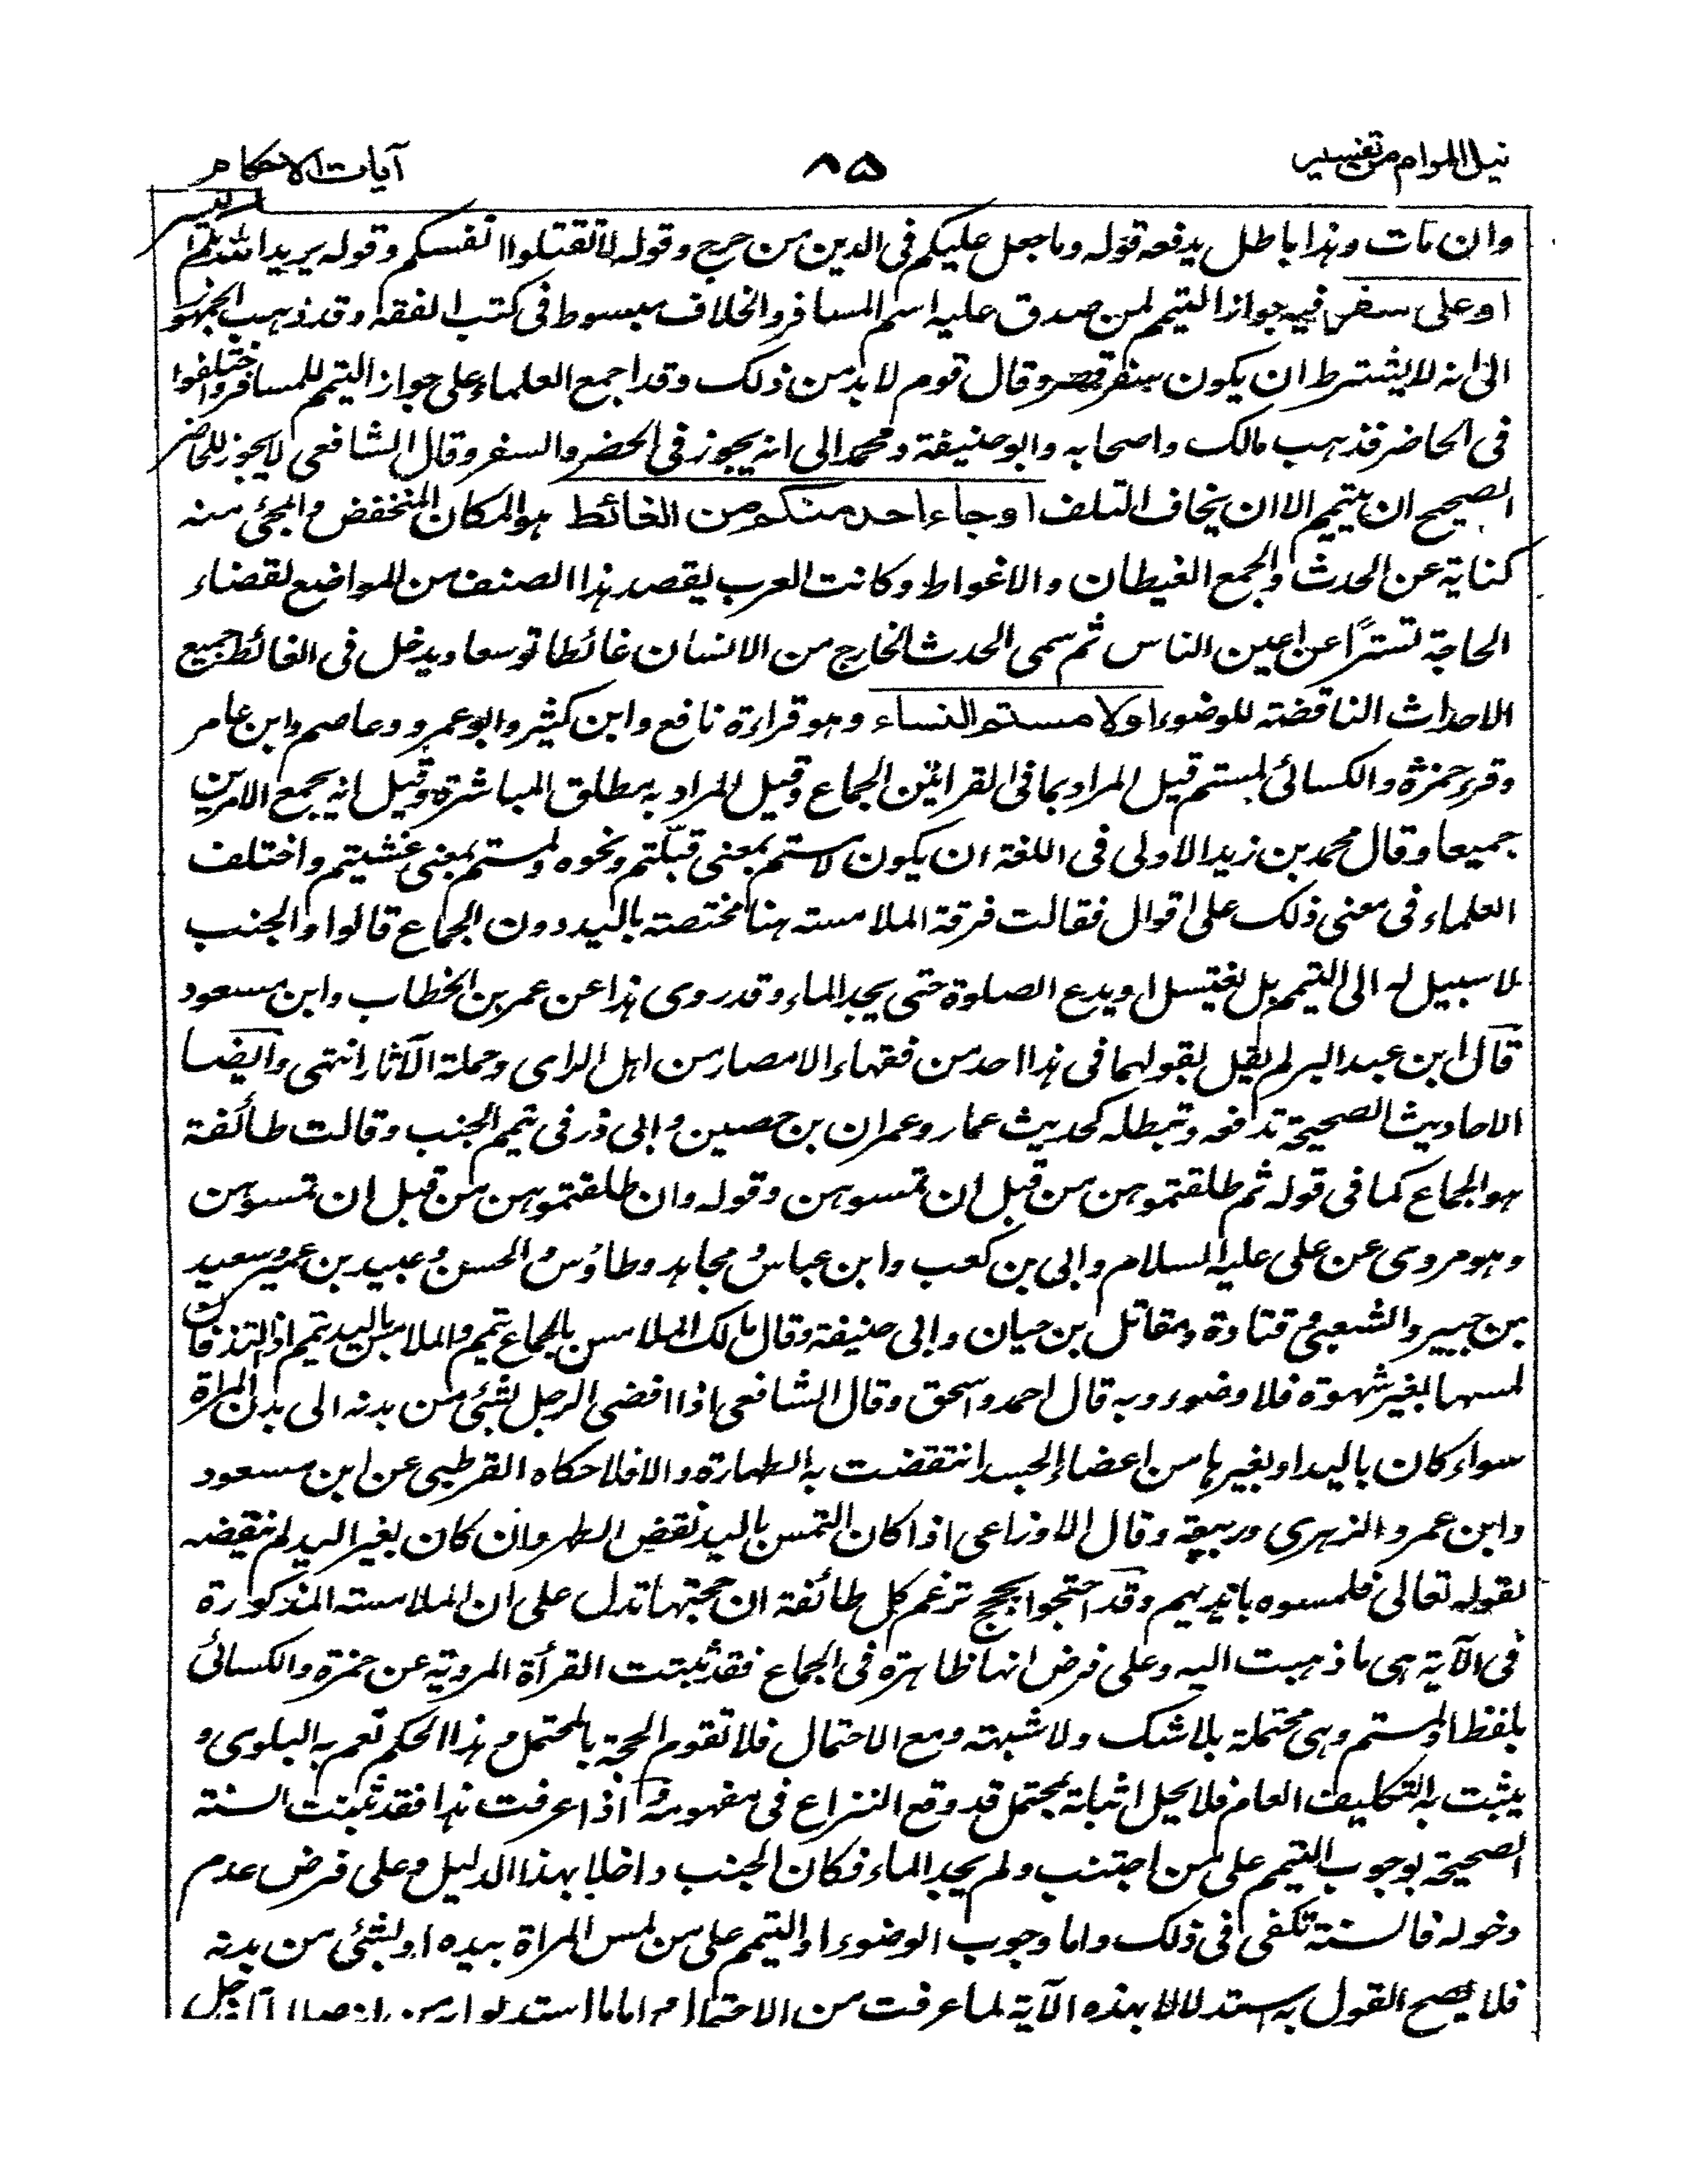 نيل المرام من تفسير
٨٥
آيات الاحكام
وان مات وهذا باطل يدفعه قوله وما جعل عليكم فى الدين من حرج وقوله لا تقتلوا انفسكم وقوله يريد الله بكم اليسر
او على سفر فيه جواز التيمم لمن صدق عليه اسم المسافر والخلاف مبسوط فى كتب الفقه وقد ذهب الجمهور
الى انه لا يشترط ان يكون سفر قصر وقال قوم لا بد من ذلك وقد اجمع العلماء على جواز التيمم للمسافر واختلفوا
فى الحاضر فذهب مالك واصحابه وابو حنيفة ومحمد الى انه يجوز فى الحضر والسفر وقال الشافعى لا يجوز للحاضر
الصحيح ان يتيمم الا ان يخاف التلف او جاء احد منكم من الغائط هو المكان المنخفض والمجئ منه
كناية عن الحدث والجمع الغيطان والاغواط وكانت العرب يقصد هذا الصنف من المواضع لقضاء
الحاجة تسترًا عن اعين الناس ثم سمى الحدث الخارج من الانسان غائطا توسعا ويدخل فى الغائط جميع
الاحداث الناقضة للوضوء او لامستم النساء وهو قراءة نافع وابن كثير وابو عمرو وعاصم وابن عامر
وقرء حمزة والكسائى لمستم قيل المراد بما فى القرائتين الجماع وقيل المراد به مطلق المباشرة وقيل انه يجمع الامرين
جميعا وقال محمد بن زيد الاولى فى اللغة ان يكون لامستم بمعنى قبّلتم ونحوه ولمستم بمعنى غشيتم واختلف
العلماء فى معنى ذلك على اقوال فقالت فرقة الملامسة هنا مختصة باليد دون الجماع قالوا والجنب
لا سبيل له الى التيمم بل يغتسل او يدع الصلوة حتى يجد الماء وقد روى هذا عن عمر بن الخطاب وابن مسعود
قال ابن عبد البر لم يقل بقولهما فى هذا احد من فقهاء الامصار من اهل الراى وحملة الآثار انتهى وايضا
الاحاديث الصحيحة تدفعه وتبطله كحديث عمار وعمران بن حصين وابى ذر فى تيمم الجنب وقالت طائفة
هو الجماع كما فى قوله ثم طلقتموهن من قبل ان تمسوهن وقوله وان طلقتموهن من قبل ان تمسوهن
وهو مروى عن على عليه السلام وابى بن كعب وابن عباس ومجاهد وطاؤس والحسن وعبيد بن عمير وسعيد
بن جبير والشعبى وقتادة ومقاتل بن حيان وابى حنيفة وقال مالك الملامس بالجماع يتيمم والملامس باليد يتيمم اذا التذ فان كان
لمسها بغير شهوة فلا وضوء وبه قال احمد واسحق وقال الشافعى اذا افضى الرجل بشئ من بدنه الى بدن المراة
سواء كان باليد او بغيرها من اعضاء الجسد انتقضت به الطهارة والا فلا حكاه القرطبى عن ابن مسعود
وابن عمر والزهرى وربيعة وقال الاوزاعى اذا كان اللمس باليد نقض الطهر وان كان بغير اليد لم ينقضه
لقوله تعالى فلمسوه بايديهم وقد احتجوا بحجج تزعم كل طائفة ان حجتها تدل على ان الملامسة المذكورة
فى الآية هى ما ذهبت اليه وعلى فرض انها ظاهرة فى الجماع فقد ثبتت القرأة المروية عن حمزة والكسائى
بلفظ او لمستم وهى محتملة بلا شك ولا شبهة ومع الاحتمال فلا تقوم الحجة بالمحتمل وهذا الحكم تعم به البلوى و
يثبت به التكليف العام فلا يحل اثباته بمحتمل قد وقع النزاع فى مفهومه واذا عرفت هذا فقد ثبتت السنة
الصحيحة بوجوب التيمم على من اجتنب ولم يجد الماء فكان الجنب داخلا بهذا الدليل وعلى فرض عدم
دخوله فالسنة تكفى فى ذلك واما وجوب الوضوء او التيمم على من لمس المراة بيده او بشئ من بدنه
فلا يصح القول به استدلالا بهذه الآية لما عرفت من الاحتمال واما ما استدلوا به من